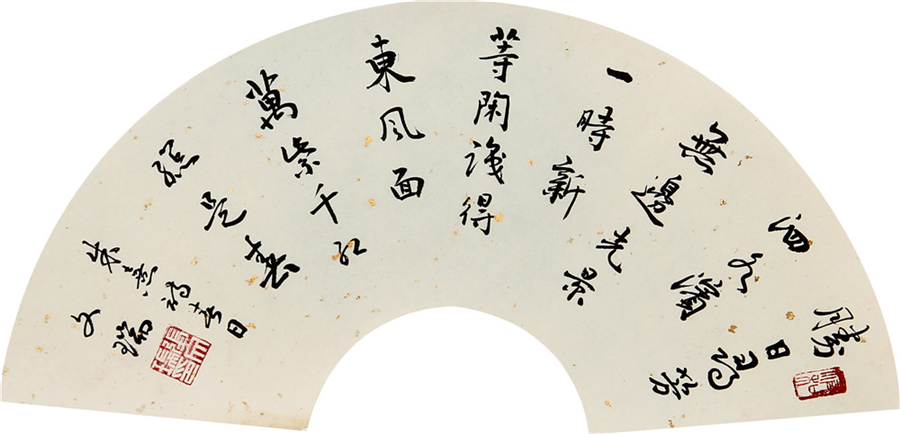 勝日尋芳
泗水濱
無邊光景
一時新
等閑識得
東風面
萬紫千紅
總是春
朱熹詩春日
文瑞